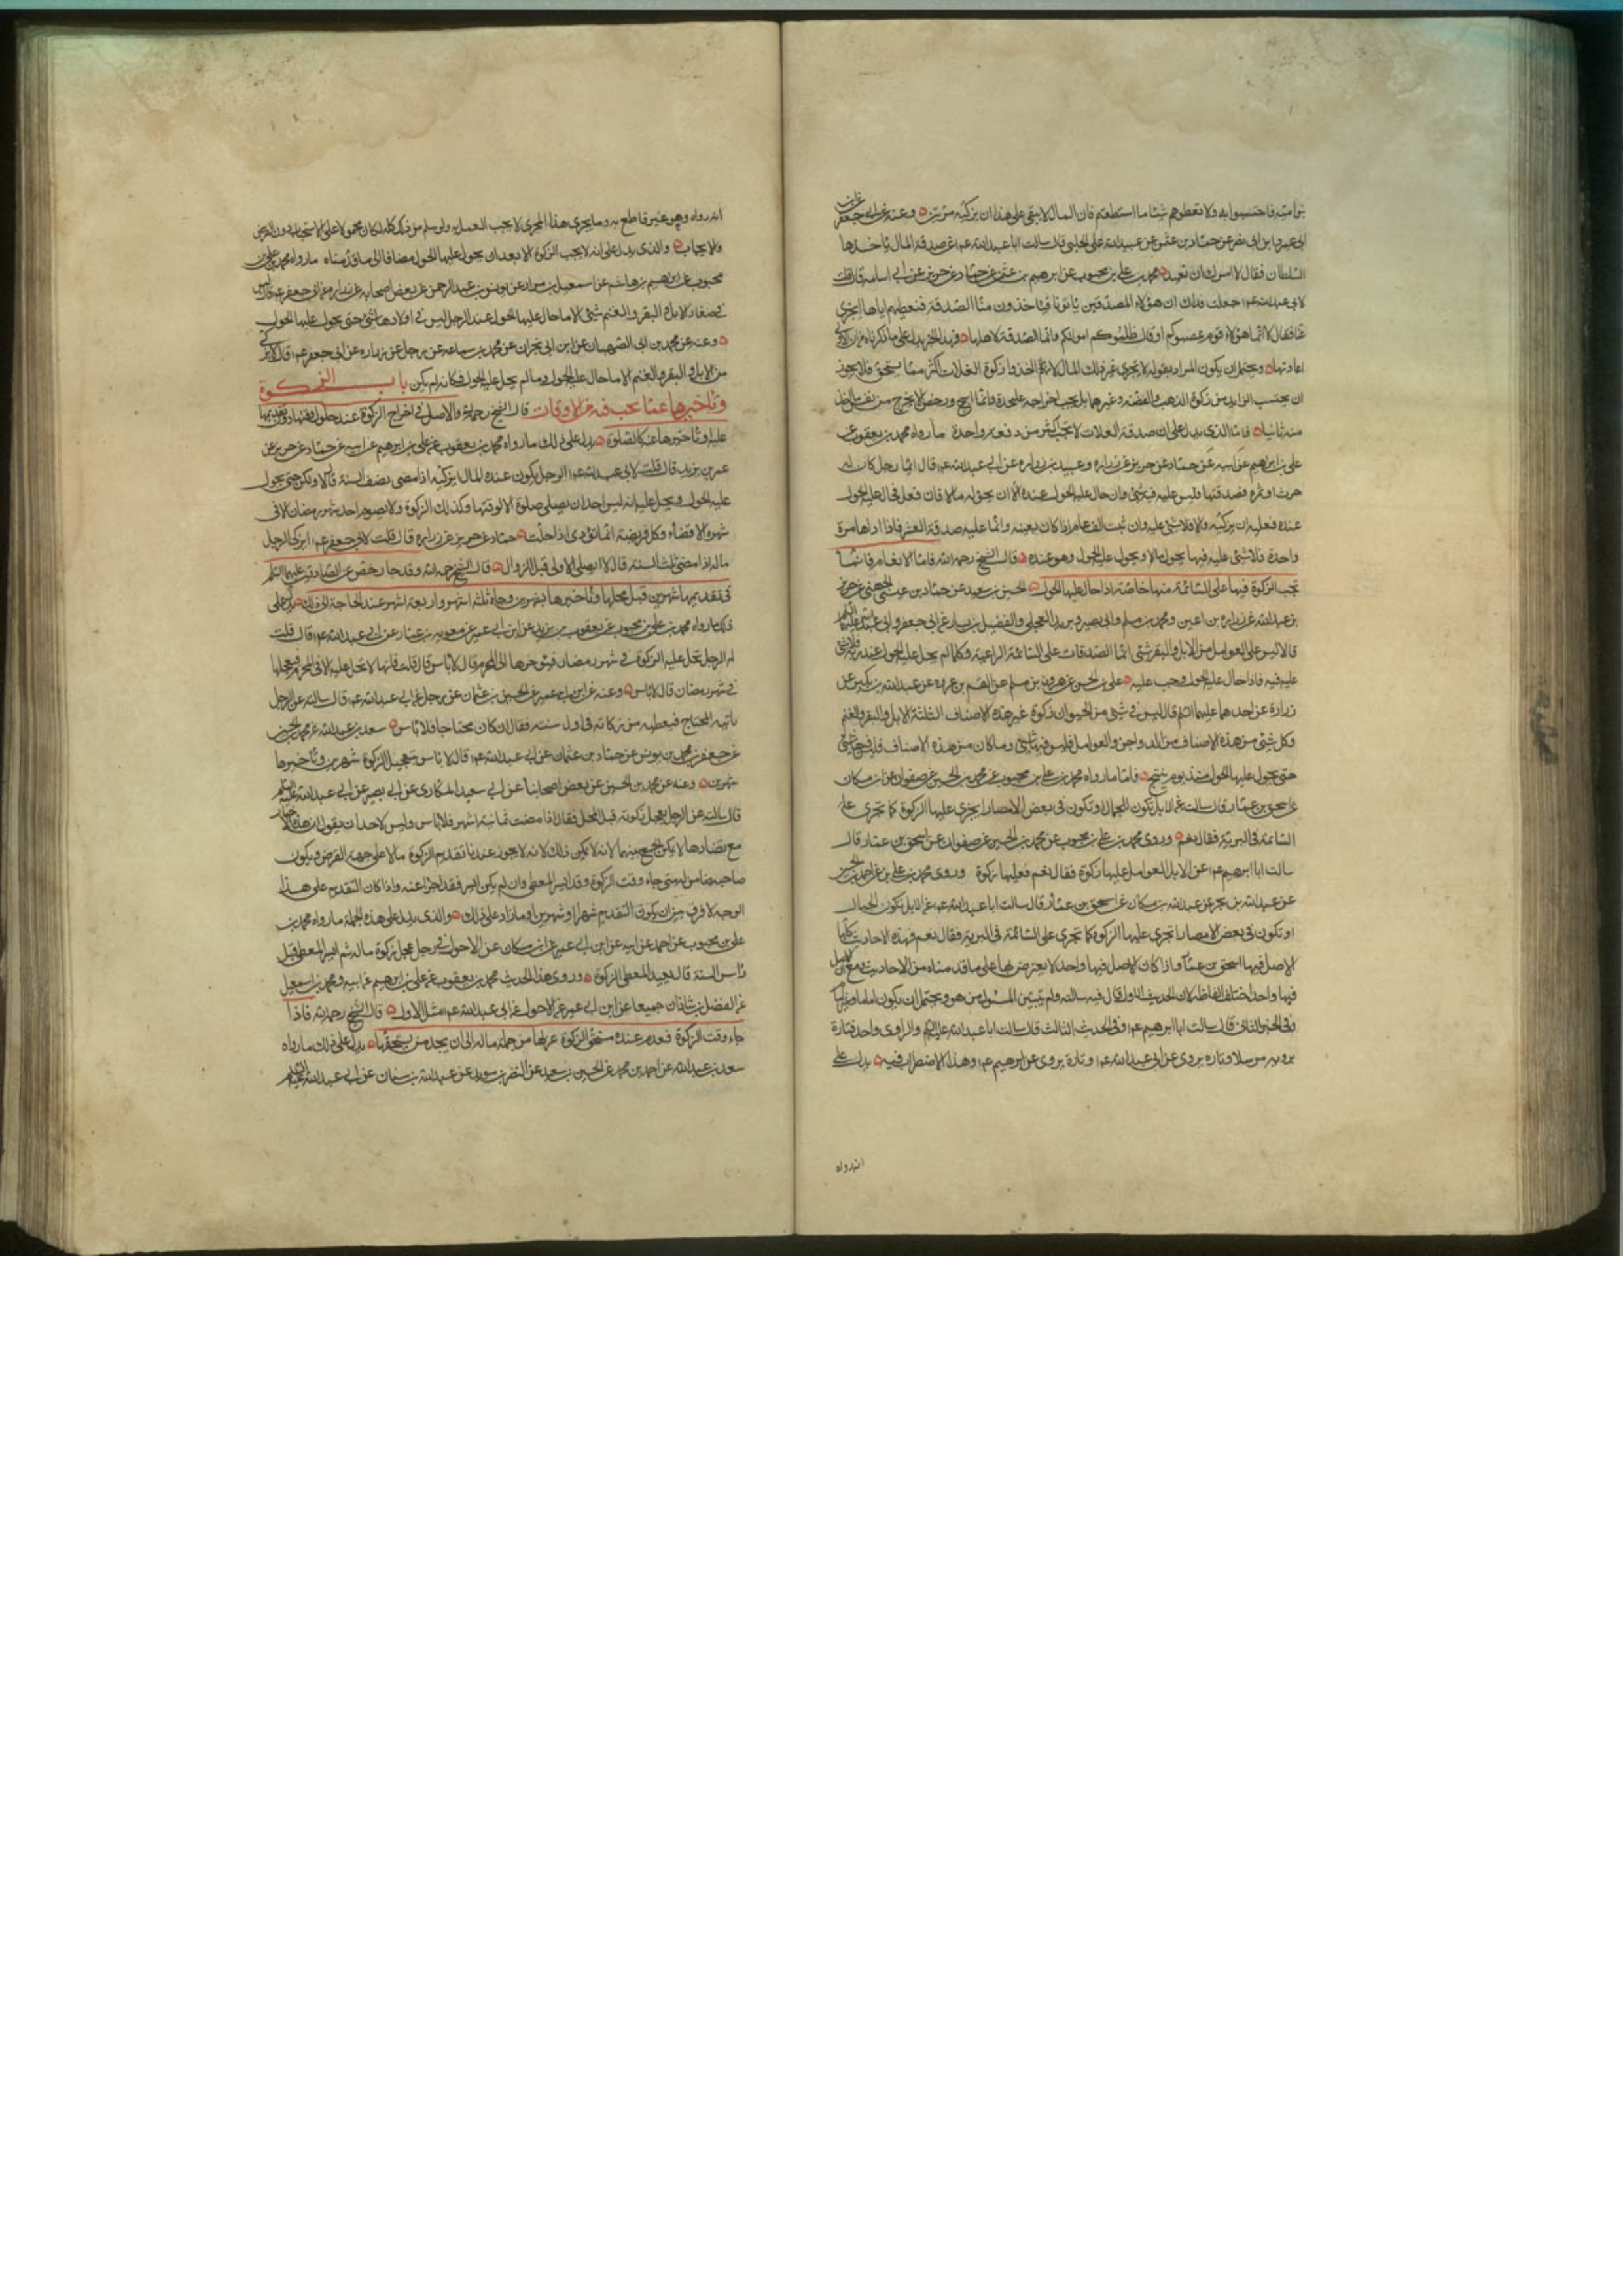 بنو امية فاحتسبوا به ولا تعطوهم شيئا ما استطعتم فان المال لا يبقى على هذا ان يزكيه مرتين وعنه عن ابى جعفر عن ابن
ابى عمير وابن ابى نصر عن حماد بن عثمن عن عبيد الله على الحلبى قال سالت ابا عبد الله عم عن صدقة المال ياخذها
السلطان فقال لا امرك ان تعيد محمد بن على بن محبوب عن ابرهيم بن عثمن عن حماد عن حريز عن ابى اسامة قال قلت
لابى عبد الله عم جعلت فداك ان هؤلاء المصدقين ياتونا فياخذون منا الصدقة فنعطيهم اياها ايجزى
عنا فقال لا انما هؤلاء قوم غصبوكم او قال ظلموكم اموالكم وانما الصدقة لاهلها
اعادتها ويحتمل ان يكون المراد بقوله لا يجزى عن غير ذلك المال لانهم اذا اخذوا زكوة الغلات اكثر مما يستحق فلا يجوز
ان يحتسب الزايد من زكوة الذهب والفضة وغيرهما بل يجب اخراجه على حدة وانما ابيح ورخص الا يخرج من نفس ما اخذ
منه ثانيا فاما الذى يدل على ان صدقة الغلات لا يجب اكثر من دفعة واحدة ما رواه محمد بن يعقوب عن
على بن ابرهيم عن ابيه عن حماد عن حريز عن زراره وعبيد بن زراره عن ابى عبد الله عم قال ايما رجل كان له
حرث او ثمرة فصدقها فليس عليه فيه شئ وان حال عليه الحول عنده الا ان يحول مالا فان فعل فحال عليه الحول
عنده فعليه ان يزكيه والا فلا شئ عليه وان ثبت الف عام اذا كان بعينه وانما عليه صدقة العشر فاذا اداها مرة
واحدة فلا شئ عليه فيها حتى يحوله مالا ويحول عليه الحول وهو عنده قال الشيخ رحمه الله فاما الانعام فانما
تجب الزكوة فيها على السائمة منها خاصة اذا حال عليها الحول الحسين بن سعيد عن حماد بن عيسى الجهنى عن حريز
بن عبد الله عن زراره بن اعين ومحمد بن مسلم وابى بصير وبريد العجلى والفضيل بن يسار عن ابى جعفر وابى عبد الله عليهما السلم
قالا ليس على العوامل من الابل والبقر شئ انما الصدقات على السائمة الراعية وكلما لم يحل عليه الحول عند ربه فلا شئ
عليه فيه فاذا حال عليه الحول وجب عليه على بن الحسن عن هرون بن مسلم عن القسم بن عروه عن عبد الله بن بكير عن
زرارة عن احدهما عليهما السلم قال ليس فى شئ من الحيوان زكوة غير هذه الاصناف الثلثة الابل والبقر والغنم
وكل شئ من هذه الاصناف من الدواجن والعوامل فليس فيها شئ وما كان من هذه الاصناف فليس فيها شئ
حتى يحول عليها الحول منذ يوم ينتج فاما ما رواه محمد بن على بن محبوب عن محمد بن الحسين عن صفوان عن ابن مسكان
عن اسحق بن عمار قال سالته عن الابل تكون للجمال او تكون فى بعض الامصار ايجزى عليها الزكوة كما تجرى على
السائمة فى البرية فقال نعم وروى محمد بن على بن محبوب عن محمد بن الحسين عن صفوان عن اسحق بن عمار قال
سالت ابا ابرهيم عم عن الابل العوامل عليها زكوة فقال نعم عليها زكوة وروى محمد بن على بن
عن عبد الله بن بحر عن عبد الله بن مسكان عن اسحق بن عمار قال سالت ابا عبد الله عم عن الابل تكون للجمال
او تكون فى بعض الامصار اتجرى عليها الزكوة كما تجرى على السائمة فى البرية فقال نعم فهذه الاحاديث كلها
الاصل فيها اسحق بن عمار واذا كان الاصل فيها واحدا لا يعترض بها على ما قدمناه من الاحاديث ومع ان الاصل
فيها واحد اختلف الفاظه لان الحديث الاول قال فيه سالته ولم يتبين المسئول من هو ويحتمل ان يكون اماما وغير امام
وفى الخبر الثانى قال سالت ابا ابرهيم عم وفى الحديث الثالث قال سالت ابا عبد الله عليه السلم والراوى واحد فتارة
يرويه مرسلا وتارة يروى عن ابى عبد الله عم وتارة يروى عن ابرهيم عم وهذا الاضطراب فيه يدل على
انه رواه
انه رواه وهو غير قاطع به وما يجرى هذا المجرى لا يجب العمل به ولو سلم من ذلك كله لكان محمولا على الاستحباب دون الفرض
والايجاب والذى يدل على انه لا يجب الزكوة الا بعد ان يحول عليها الحول مضافا الى ما قدمناه ما رواه محمد بن على بن
محبوب عن ابرهيم بن هاشم عن اسمعيل بن مرار عن يونس بن عبد الرحمن عن بعض اصحابه عن زراره عن ابى جعفر عم قال ليس
فى صغار الابل والبقر والغنم شئ الا ما حال عليها الحول عند الرجل وليس فى اولادها شئ حتى يحول عليها الحول
وعنه عن محمد بن ابى الصهبان عن ابن ابى نجران عن محمد بن سماعه عن رجل عن زراره عن ابى جعفر عم قال لا يزكى
من الابل والبقر والغنم الا ما حال عليه الحول وما لم يحل عليه الحول فكانه لم يكن باب الزكوة
وتاخيرها عما يجب فيه من الاوقات قال الشيخ رحمه الله والاصل فى اخراج الزكوة عند حلول وقتها دون تقديمها
عليه او تاخيرها عنه كالصلوة يدل على ذلك ما رواه محمد بن يعقوب عن على بن ابرهيم عن ابيه عن حماد عن حريز عن
عمر بن يزيد قال قلت لابى عبد الله عم الرجل يكون عنده المال ايزكيه اذا مضى نصف السنة قال لا ولكن حتى يحول
عليه الحول ويحل عليه انه ليس لاحد ان يصلى صلوة الا لوقتها وكذلك الزكوة ولا يصوم احد شهر رمضان الا فى
شهره الا قضاء وكل فريضة انما تؤدى اذا حلت حماد عن حريز عن زراره قال قلت لابى جعفر عم ايزكى الرجل
ماله اذا مضى ثلث السنة قال لا ايصلى الاولى قبل الزوال قال الشيخ رحمه الله وقد جاء رخص عن الصادقين عليهما السلم
فى تقديمها شهرين قبل محلها وتاخيرها شهرين وجاء ثلثة اشهر واربعة اشهر عند الحاجة الى ذلك يدل على
ذلك ما رواه محمد بن على بن محبوب عن يعقوب بن يزيد عن ابن ابى عمير عن معويه بن عمار عن ابى عبد الله عم قال قلت
له الرجل تحل عليه الزكوة فى شهر رمضان فيؤخرها الى المحرم قال لا باس قال قلت فانها لا تحل عليه الا فى المحرم فيعجلها
فى شهر رمضان قال لا باس وعنه عن ابن ابى عمير عن الحسين بن عثمان عن رجل عن ابى عبد الله عم قال سالته عن الرجل
ياتيه المحتاج فيعطيه من زكاته فى اول سنته فقال ان كان محتاجا فلا باس سعد بن عبد الله عن محمد بن الحسين
عن جعفر بن محمد بن يونس عن حماد بن عثمان عن ابى عبد الله عم قال لا باس بتعجيل الزكوة شهرين وتاخيرها
شهرين وعنه عن محمد بن الحسين عن بعض اصحابنا عن ابى سعيد المكارى عن ابى بصير عن ابى عبد الله عليه السلم
قال سالته عن الرجل يعجل زكوته قبل المحل فقال اذا مضت ثمانية اشهر فلا باس وليس لاحد ان يقول ان هذه الاخبار
مع تضادها لا يمكن الجمع بينها لانه لا يمكن ذلك لانه لا يجوز عندنا تقديم الزكوة مالا على جهة القرض ويكون
صاحبه ضامنا له متى جاء وقت الزكوة وقد ايسر المعطى وان لم يكن ايسر فقد اجزا عنه واذا كان التقديم على هذا
الوجه لا فرق بين ان يكون التقديم شهرا او شهرين او ما زاد على ذلك والذى يدل على هذه الجملة ما رواه محمد بن
على بن محبوب عن احمد عن ابيه عن ابن ابى عمير عن ابن مسكان عن الاحول فى رجل عجل زكوة ماله ثم ايسر المعطى قبل
راس السنة قال يعيد المعطى الزكوة وروى هذا الحديث محمد بن يعقوب عن على بن ابرهيم عن ابيه ومحمد بن اسمعيل
عن الفضل بن شاذان جميعا عن ابن ابى عمير عن الاحول عن ابى عبد الله عم مثل الاول قال الشيخ رحمه الله فاذا
جاء وقت الزكوة فعدم عنده مستحق الزكوة عزلها من جملة ماله الى ان يجد من يستحقها يدل على ذلك ما رواه
سعد بن عبد الله عن احمد بن محمد عن الحسين بن سعيد عن النضر بن سويد عن عبد الله بن سنان عن ابى عبد الله عليه السلم